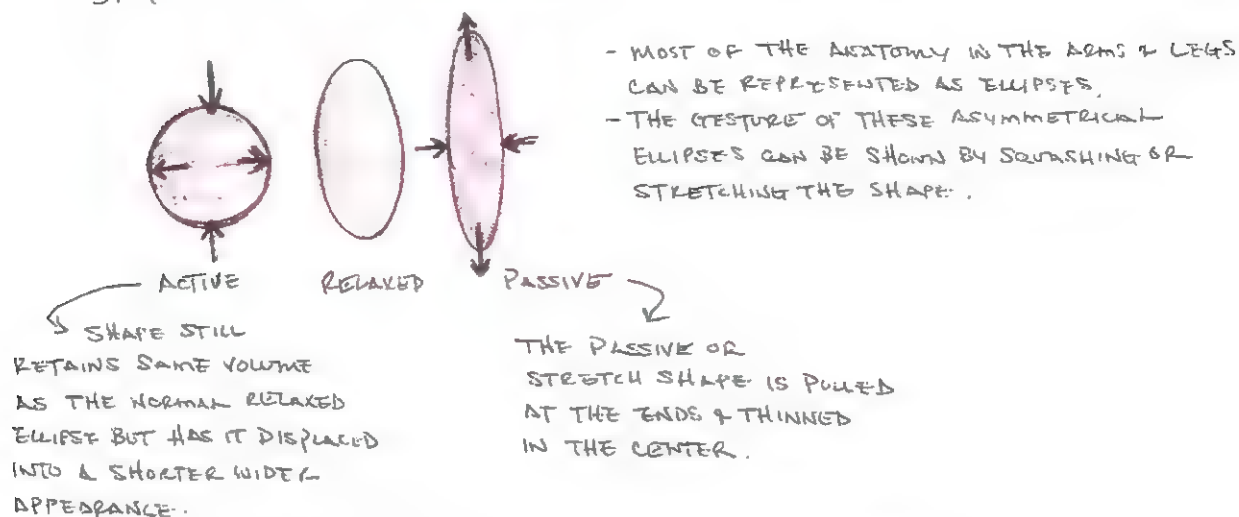 - MOST OF THE ANATOMY IN THE ARMS & LEGS
CAN BE REPRESENTED AS ELLIPSES.
- THE GESTURE OF THESE ASYMMETRICAL
ELLIPSES CAN BE SHOWN BY SQUASHING OR
STRETCHING THE SHAPE.
ACTIVE RELAXED PASSIVE
SHAPE STILL
RETAINS SAME VOLUME
AS THE NORMAL RELAXED
ELLIPSE BUT HAS IT DISPLACED
INTO A SHORTER WIDER
APPEARANCE.
THE PASSIVE OR
STRETCH SHAPE IS PULLED
AT THE ENDS & THINNED
IN THE CENTER.